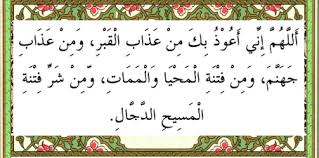 أَللَّهُمَّ إِنِّي أَعُوْذُ بِكَ مِنْ عَذَابِ الْقَبْرِ، وَمِنْ عَذَابِ
جَهَنَّمَ، وَمِنْ فِتْنَةِ الْمَحْيَا وَالْمَمَاتِ، وَمِنْ شَرِّ فِتْنَةِ
الْمَسِيحِ الدَّجَّالِ.